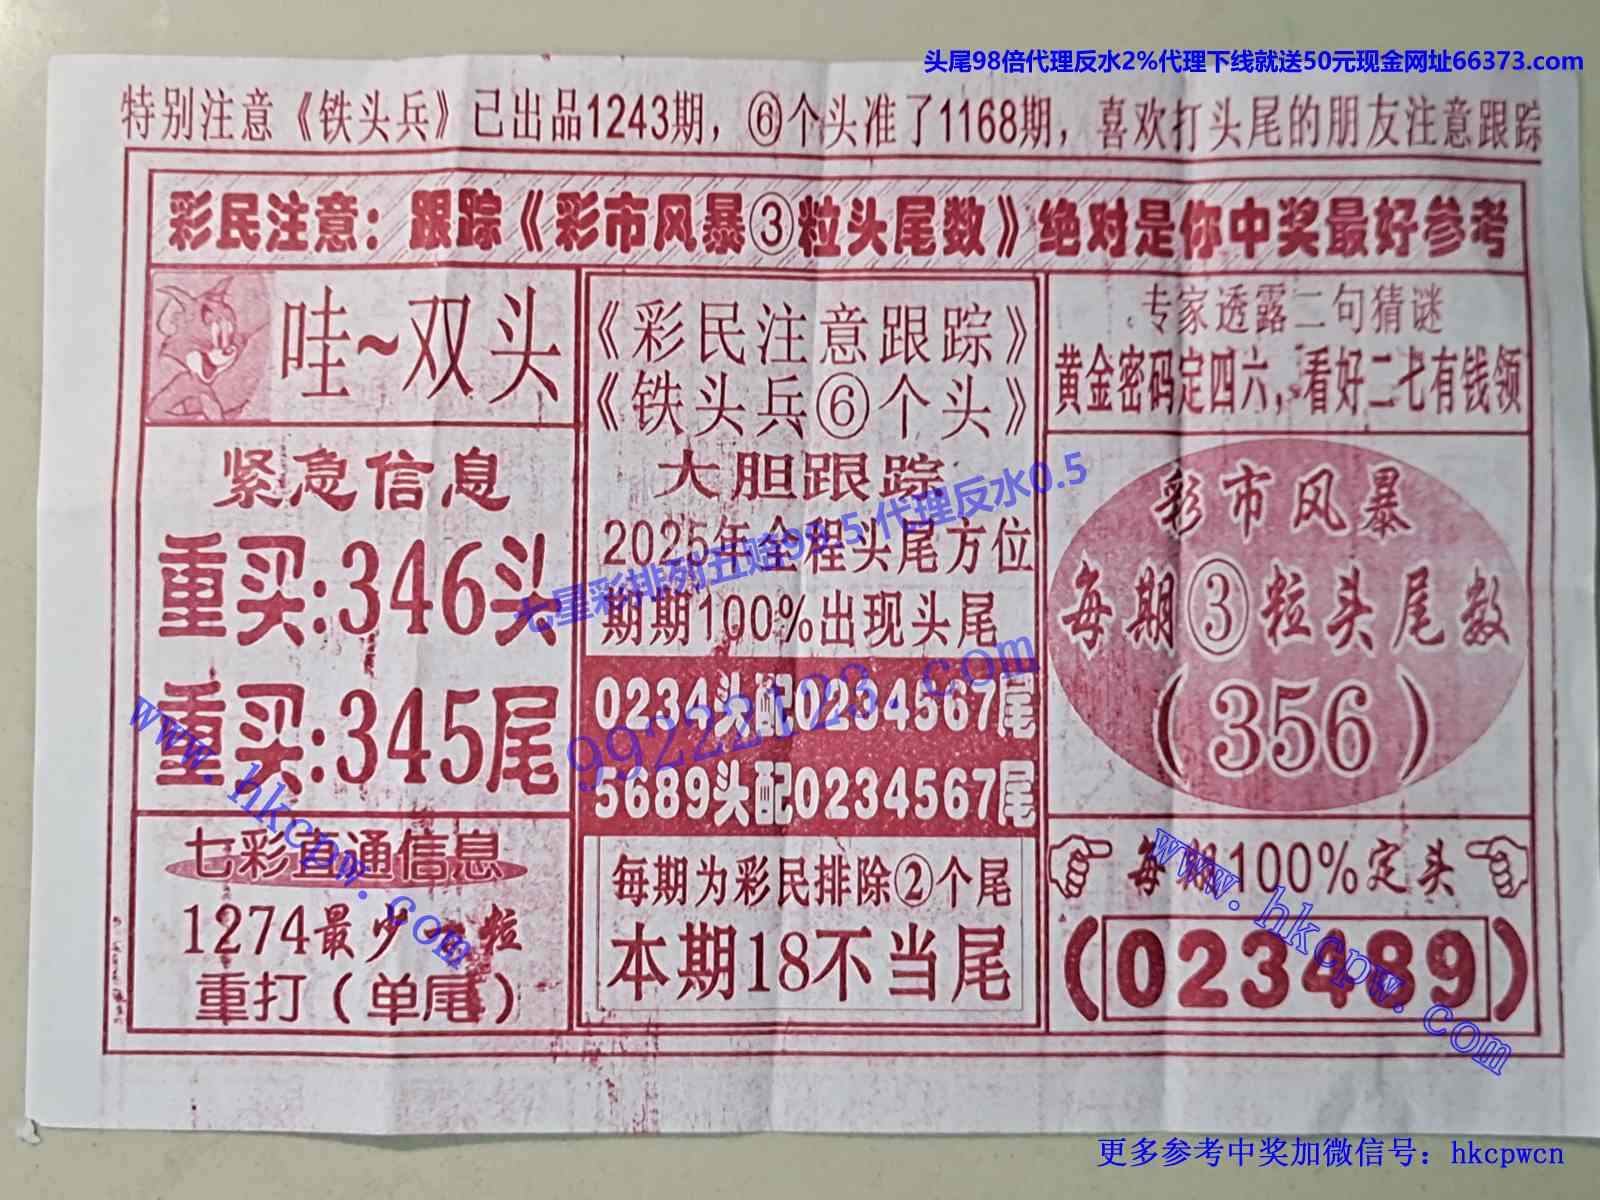 头尾98倍代理反水2%代理下线就送50元现金网址66373.com
特别注意《铁头兵》已出品1243期，⑥个头准了1168期，喜欢打头尾的朋友注意跟踪
彩民注意：跟踪《彩市风暴③粒头尾数》绝对是你中奖最好参考
哇~双头
紧急信息
重买:346头
重买:345尾
七彩直通信息
1274最少 粒
重打(单尾)
《彩民注意跟踪》
《铁头兵⑥个头》
大胆跟踪
2025年全程头尾方位
期期100%出现头尾
0234头配0234567尾
5689头配0234567尾
每期为彩民排除②个尾
本期18不当尾
专家透露二句猜谜
黄金密码定四六，看好二七有钱领
彩市风暴
每期③粒头尾数
(356)
每期100%定头
(023489)
七星彩排列五赔99.5代理反水0.5
99222123.com
www.hkcpw.com
www.hkcpw.com
更多参考中奖加微信号：hkcpwcn